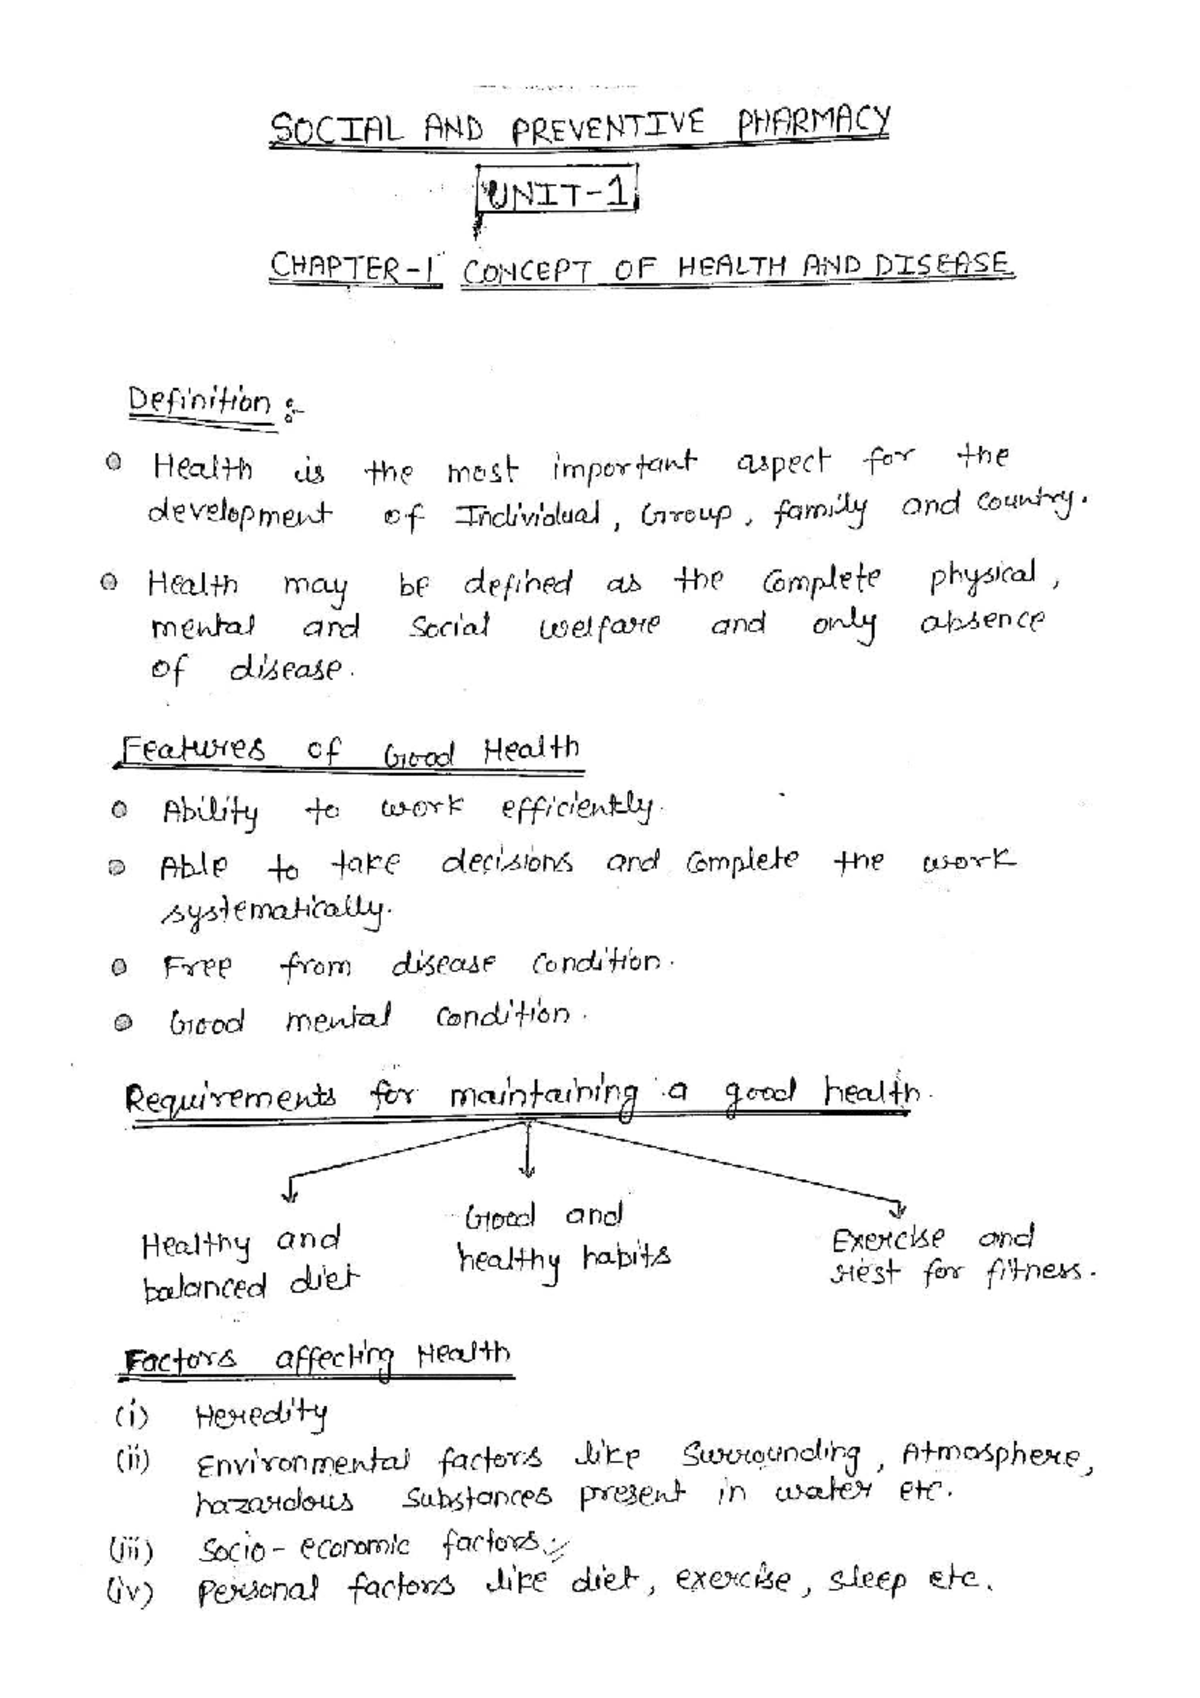 SOCIAL AND PREVENTIVE PHARMACY
UNIT-1
CHAPTER-1 CONCEPT OF HEALTH AND DISEASE
Definition :-
Health is the most important aspect for the
development of Individual, Group, family and country.
Health may be defined as the complete physical,
mental and social welfare and only absence
of disease.
Features of Good Health
Ability to work efficiently.
Able to take decisions and complete the work
systematically.
Free from disease condition.
Good mental condition.
Requirements for maintaining a good health.
Healthy and
balanced diet
Good and
healthy habits
Exercise and
rest for fitness.
Factors affecting Health
(i) Heredity
(ii) Environmental factors like Surrounding, Atmosphere,
hazardous substances present in water etc.
(iii) Socio-economic factors
(iv) Personal factors like diet, exercise, sleep etc.